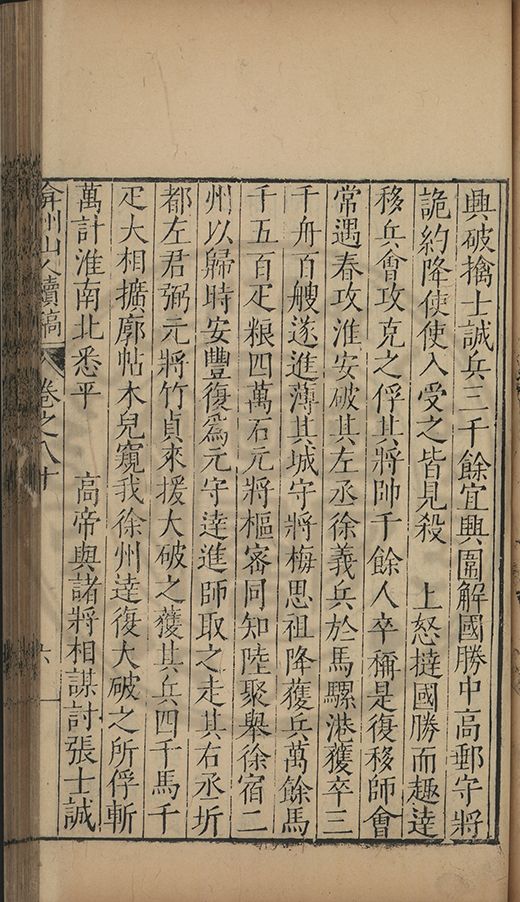 興破擒士誠兵三千餘宜興圍解國勝中高郵守將
詭約降使使入受之皆見殺　上怒撻國勝而趣達
移兵會攻克之俘其將帥千餘人卒稱是復移師會
常遇春攻淮安破其左丞徐義兵於馬騾港獲卒三
千舟百艘遂進薄其城守將梅思祖降獲兵萬餘馬
千五百疋粮四萬石元將樞密同知陸聚舉徐宿二
州以歸時安豐復爲元守達進師取之走其右丞圻
都左君弼元將竹貞來援大破之獲其兵四千馬千
疋大相擴廓帖木兒窺我徐州達復大破之所俘斬
萬計淮南北悉平　高帝與諸將相謀討張士誠
弇州山人續稿　卷之八十　六